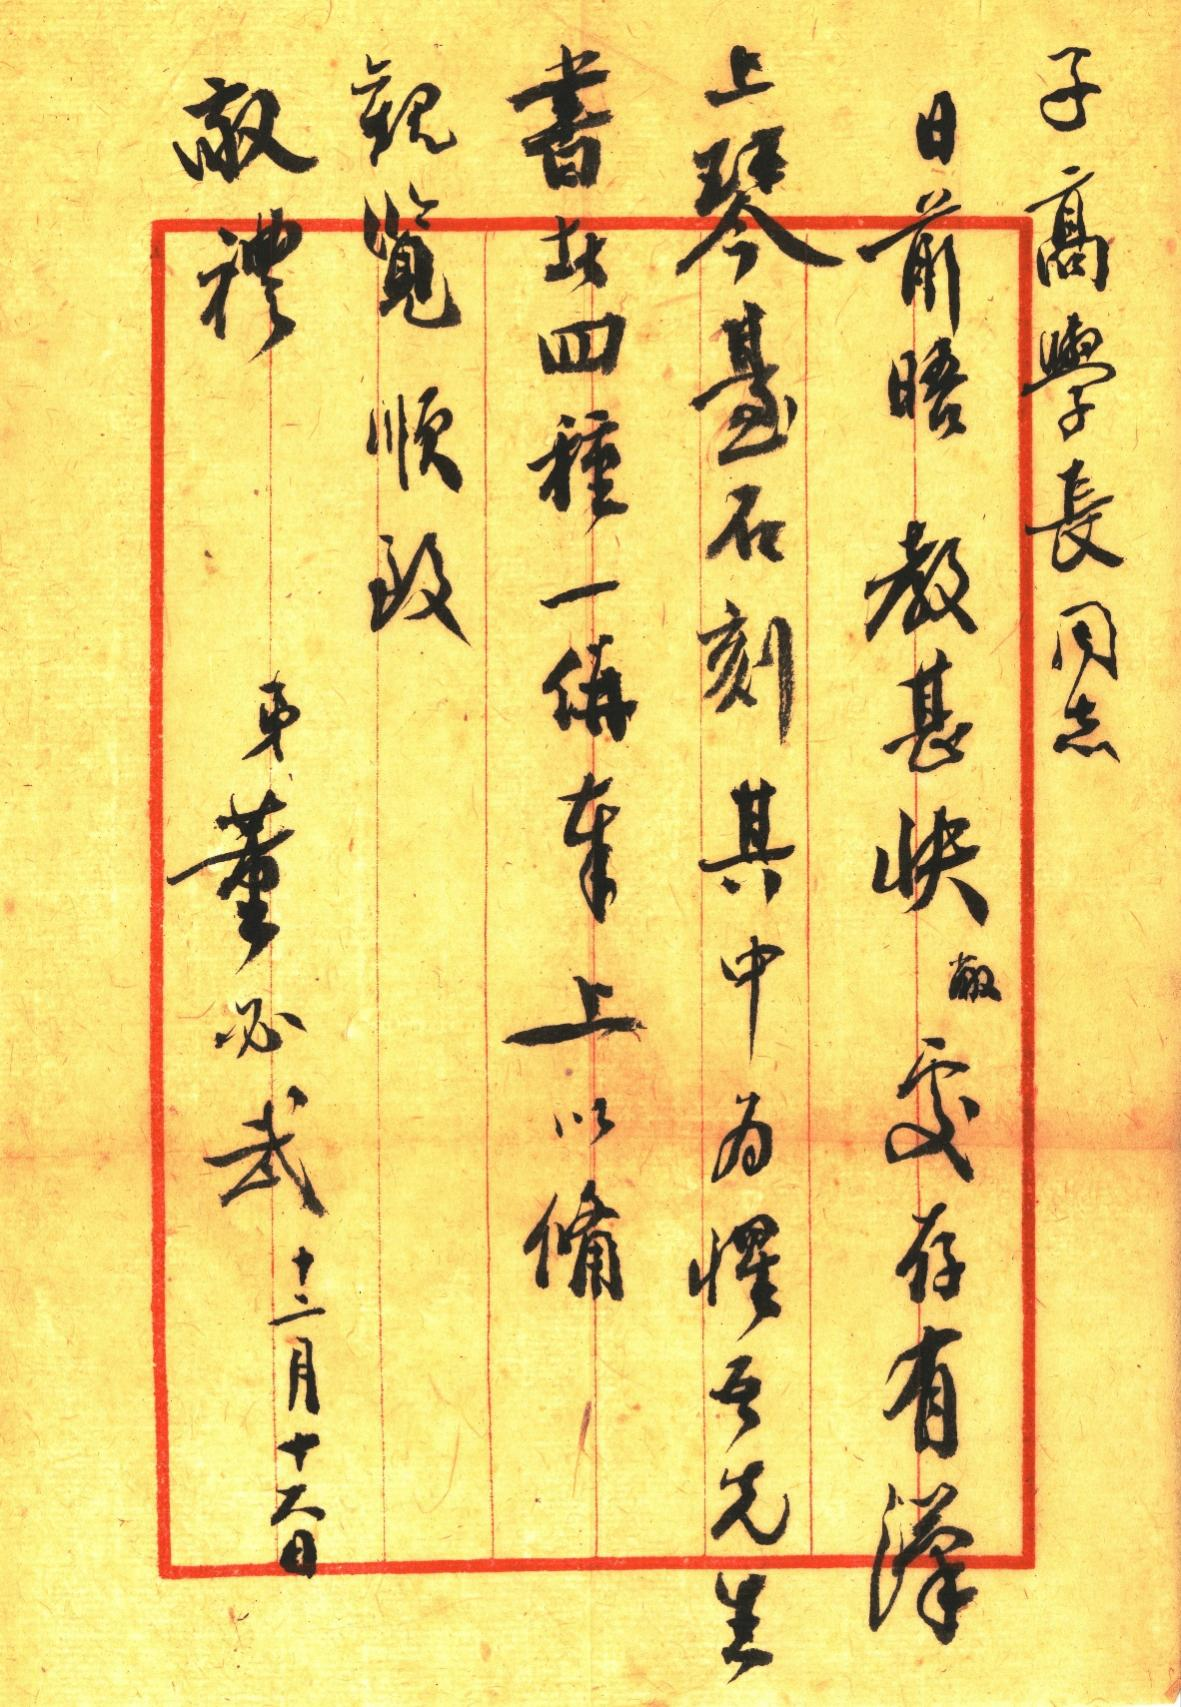 子高學長同志
日前晤 教甚快敝處存有漢
上琴臺石刻其中為惺吾先生
書共四種一併奉上以備
觀覽順致
敬禮
弟董必武十二月十六日